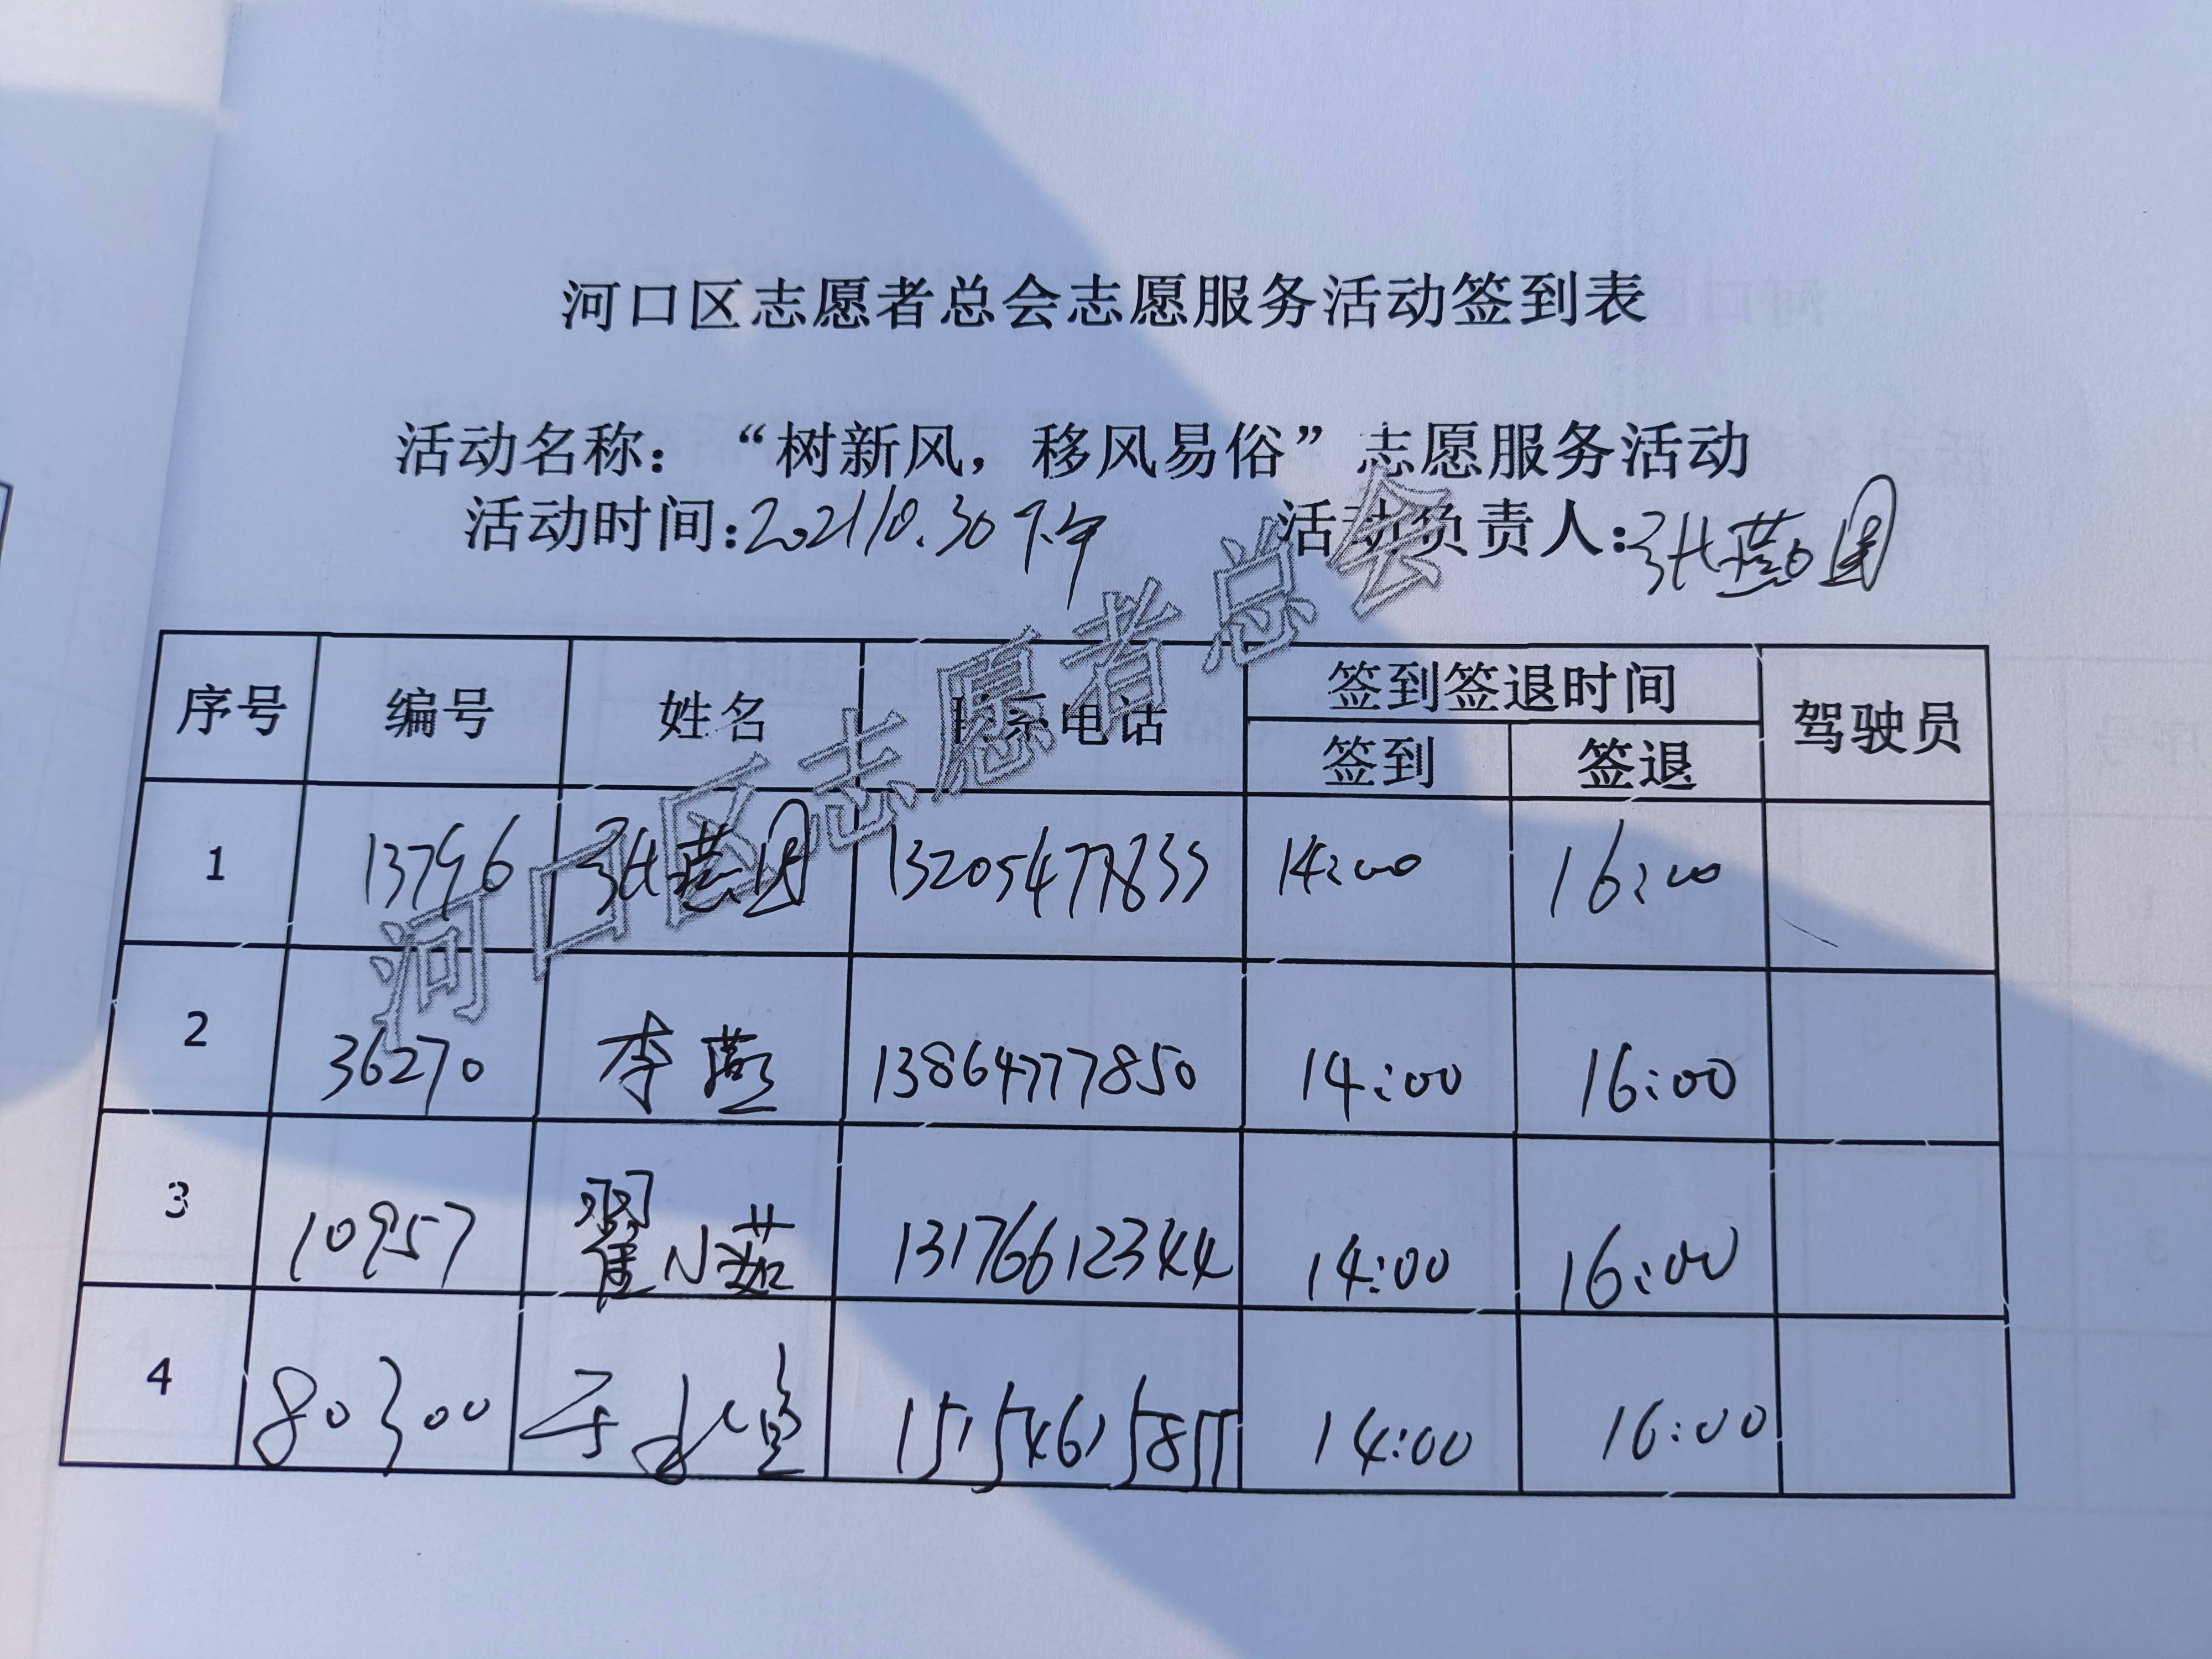 河口区志愿者总会志愿服务活动签到表
活动名称：“树新风，移风易俗”志愿服务活动
活动时间：2021.10.30 下午 活动负责人：张燕团
序号 编号 姓名 联系电话 签到签退时间 驾驶员
签到 签退
1 13796 张燕团 13205477833 14:00 16:00
2 36270 李燕 13864777850 14:00 16:00
3 10957 翟小茹 13176612344 14:00 16:00
4 80300 14:00 16:00
河口区志愿者总会